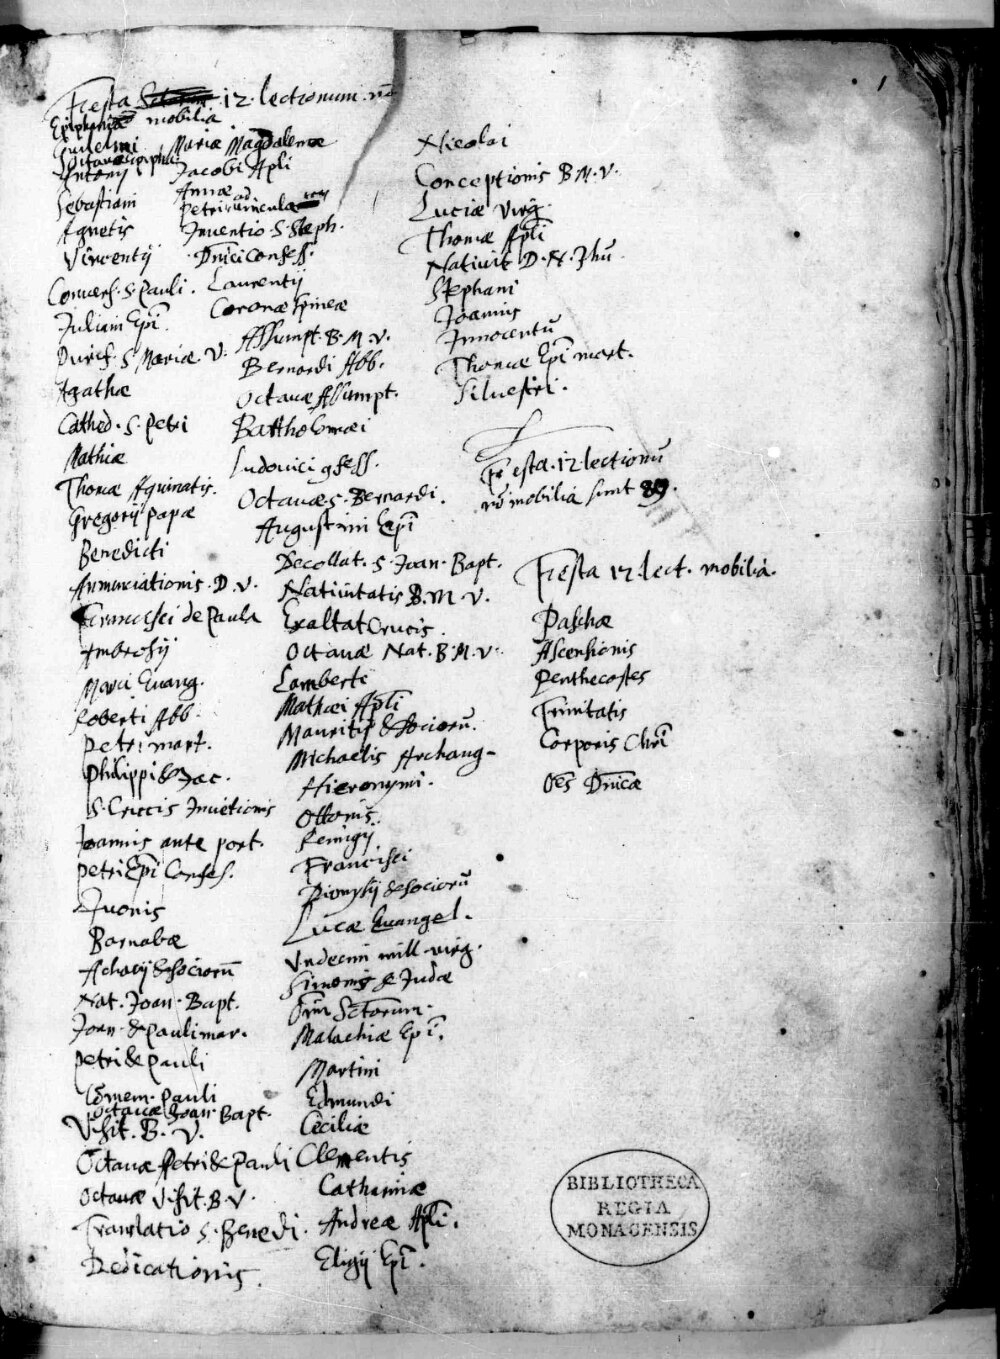 1
Festa 12. lectionum nō
mobilia
Epiphaniæ
Guielmi
Octauæ epipha:
Antonij
Sebastiani
Agnetis
Vincentij
Conuers. S. Pauli.
Juliani Epī.
Purif. S. Mariæ. V.
Agathæ
Cathed. S. Petri
Mathiæ
Thomæ Aquinatis.
Gregorij papæ
Benedicti
Annunciationis. D. V.
Francisci de Paula
Ambrosij
Marci Euang.
Roberti Abb.
Petri mart.
Philippi & Jac.
S. Crucis Inuētionis
Joannis ante port.
Petri Epī Confes.
Juonis
Barnabæ
Achacij & sociorū
Nat. Joan. Bapt.
Joan. & Pauli mar.
Petri & Pauli
Cōmem. Pauli
Octauæ Joan. Bapt.
Visit. B. V.
Octauæ Petri & Pauli
Octauæ Visit. B. V.
Translatio S. Benedi.
Dedicationis.
Mariæ Magdalenæ
Jacobi Apli
Annæ
Petri ad uincula
Inuentio S. Steph.
Dnīci Confess.
Laurentij
Coronæ spineæ
Assumpt. B. M. V.
Bernardi Abb.
Octauæ Assumpt.
Bartholomæi
Ludouici gfess.
Octauæ S. Bernardi.
Augustini Epī
Decollat. S. Joan. Bapt.
Natiuitatis B. M. V.
Exaltat Crucis.
Octauæ Nat. B. M. V.
Lamberti
Mathæi Apli
Mauritij & sociorū.
Michaelis Archang-
Hieronymi.
Ottonis.
Remigij
Francisci
Dionysij & sociorū
Lucæ Euangel.
Vndecim mill. virg.
Simonis & Judæ
Oīm Sctorum.
Malachiæ Epī.
Martini
Edmundi
Ceciliæ
Clementis
Catharinæ
Andreæ Apli.
Eligij Epī.
Nicolai
Conceptionis B. M. V.
Luciæ Virg.
Thomæ Apli
Natiuit D. N. Jhū
Stephani
Joannis
Innocentū
Thomæ Epī mart.
Siluestri.
Festa. 12 lectionū
nō mobilia sunt 89.
Festa 12. lect. mobilia.
Paschæ
Ascensionis
Penthecostes
Trinitatis
Corporis Chrī
Oēs Dnīcæ
BIBLIOTHECA
REGIA
MONACENSIS